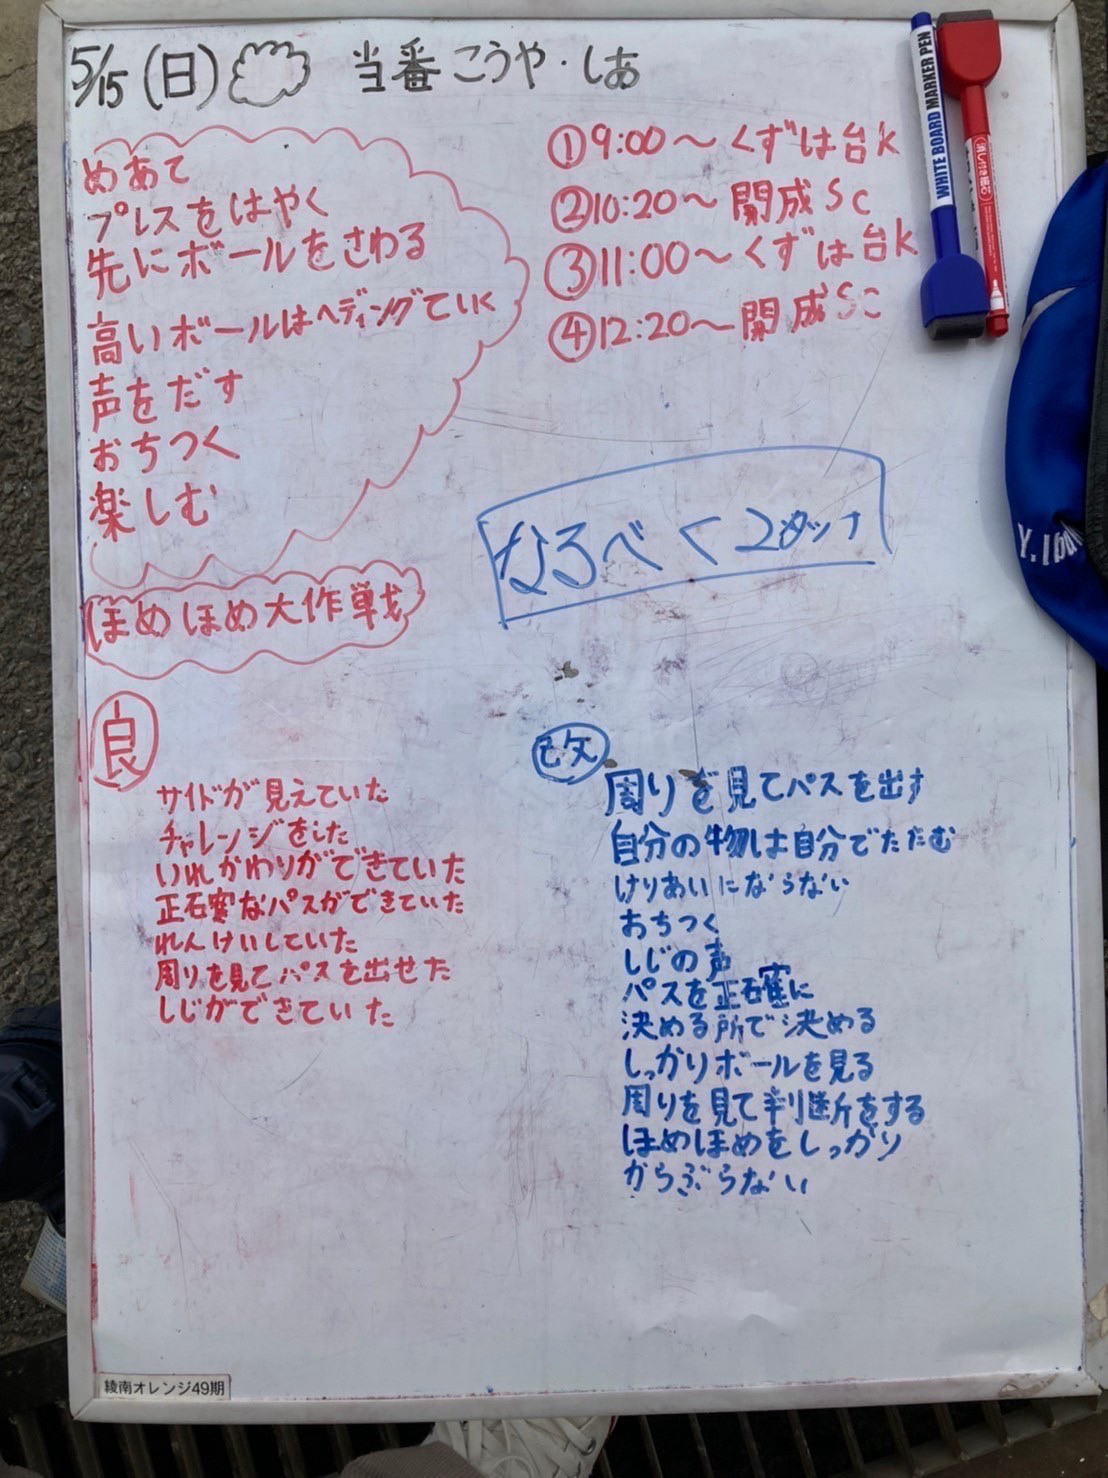 5/15(日) 当番 こうや・しお
めあて
プレスをはやく
先にボールをさわる
高いボールはヘディングでいく
声をだす
おちつく
楽しむ
①9:00～くずは台K
②10:20～開成SC
③11:00～くずは台K
④12:20～開成SC
なるべく2タッチ
ほめほめ大作戦
良
サイドが見えていた
チャレンジをした
いれかわりができていた
正確なパスができていた
れんけいしていた
周りを見てパスを出せた
しじができていた
改
周りを見てパスを出す
自分の物は自分でたたむ
けりあいにならない
おちつく
しじの声
パスを正確に
決める所で決める
しっかりボールを見る
周りを見て判断をする
ほめほめをしっかり
からぶらない
綾南オレンジ49期
WHITE BOARD MARKER PEN